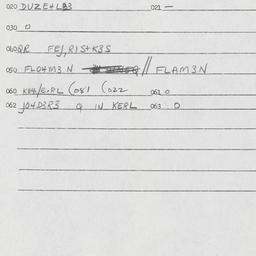 020 DUZEHLB3 021 —
030 0
040 QR FEJ, RISTK3S
050 FLOHM3N // FLAM3N
060 KEH/E.RL (081 (022 061 0
062 JOHD3R3 Q IN KERL 063 0